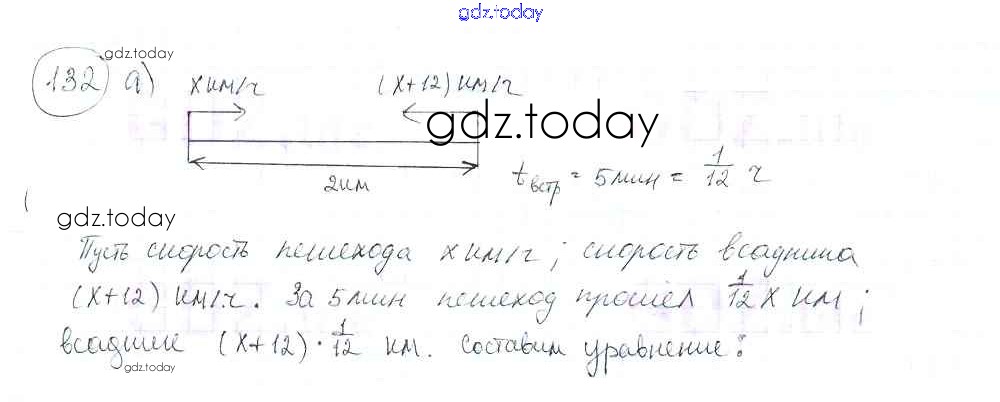 gdz.today
gdz.today
132 а) x км/ч (x+12) км/ч
gdz.today
2 км
tвстр = 5 мин = 1/12 ч
gdz.today
Пусть скорость пешехода x км/ч; скорость всадника
(x+12) км/ч. За 5 мин пешеход прошёл 1/12 x км;
всадник (x+12) · 1/12 км. Составим уравнение:
gdz.today